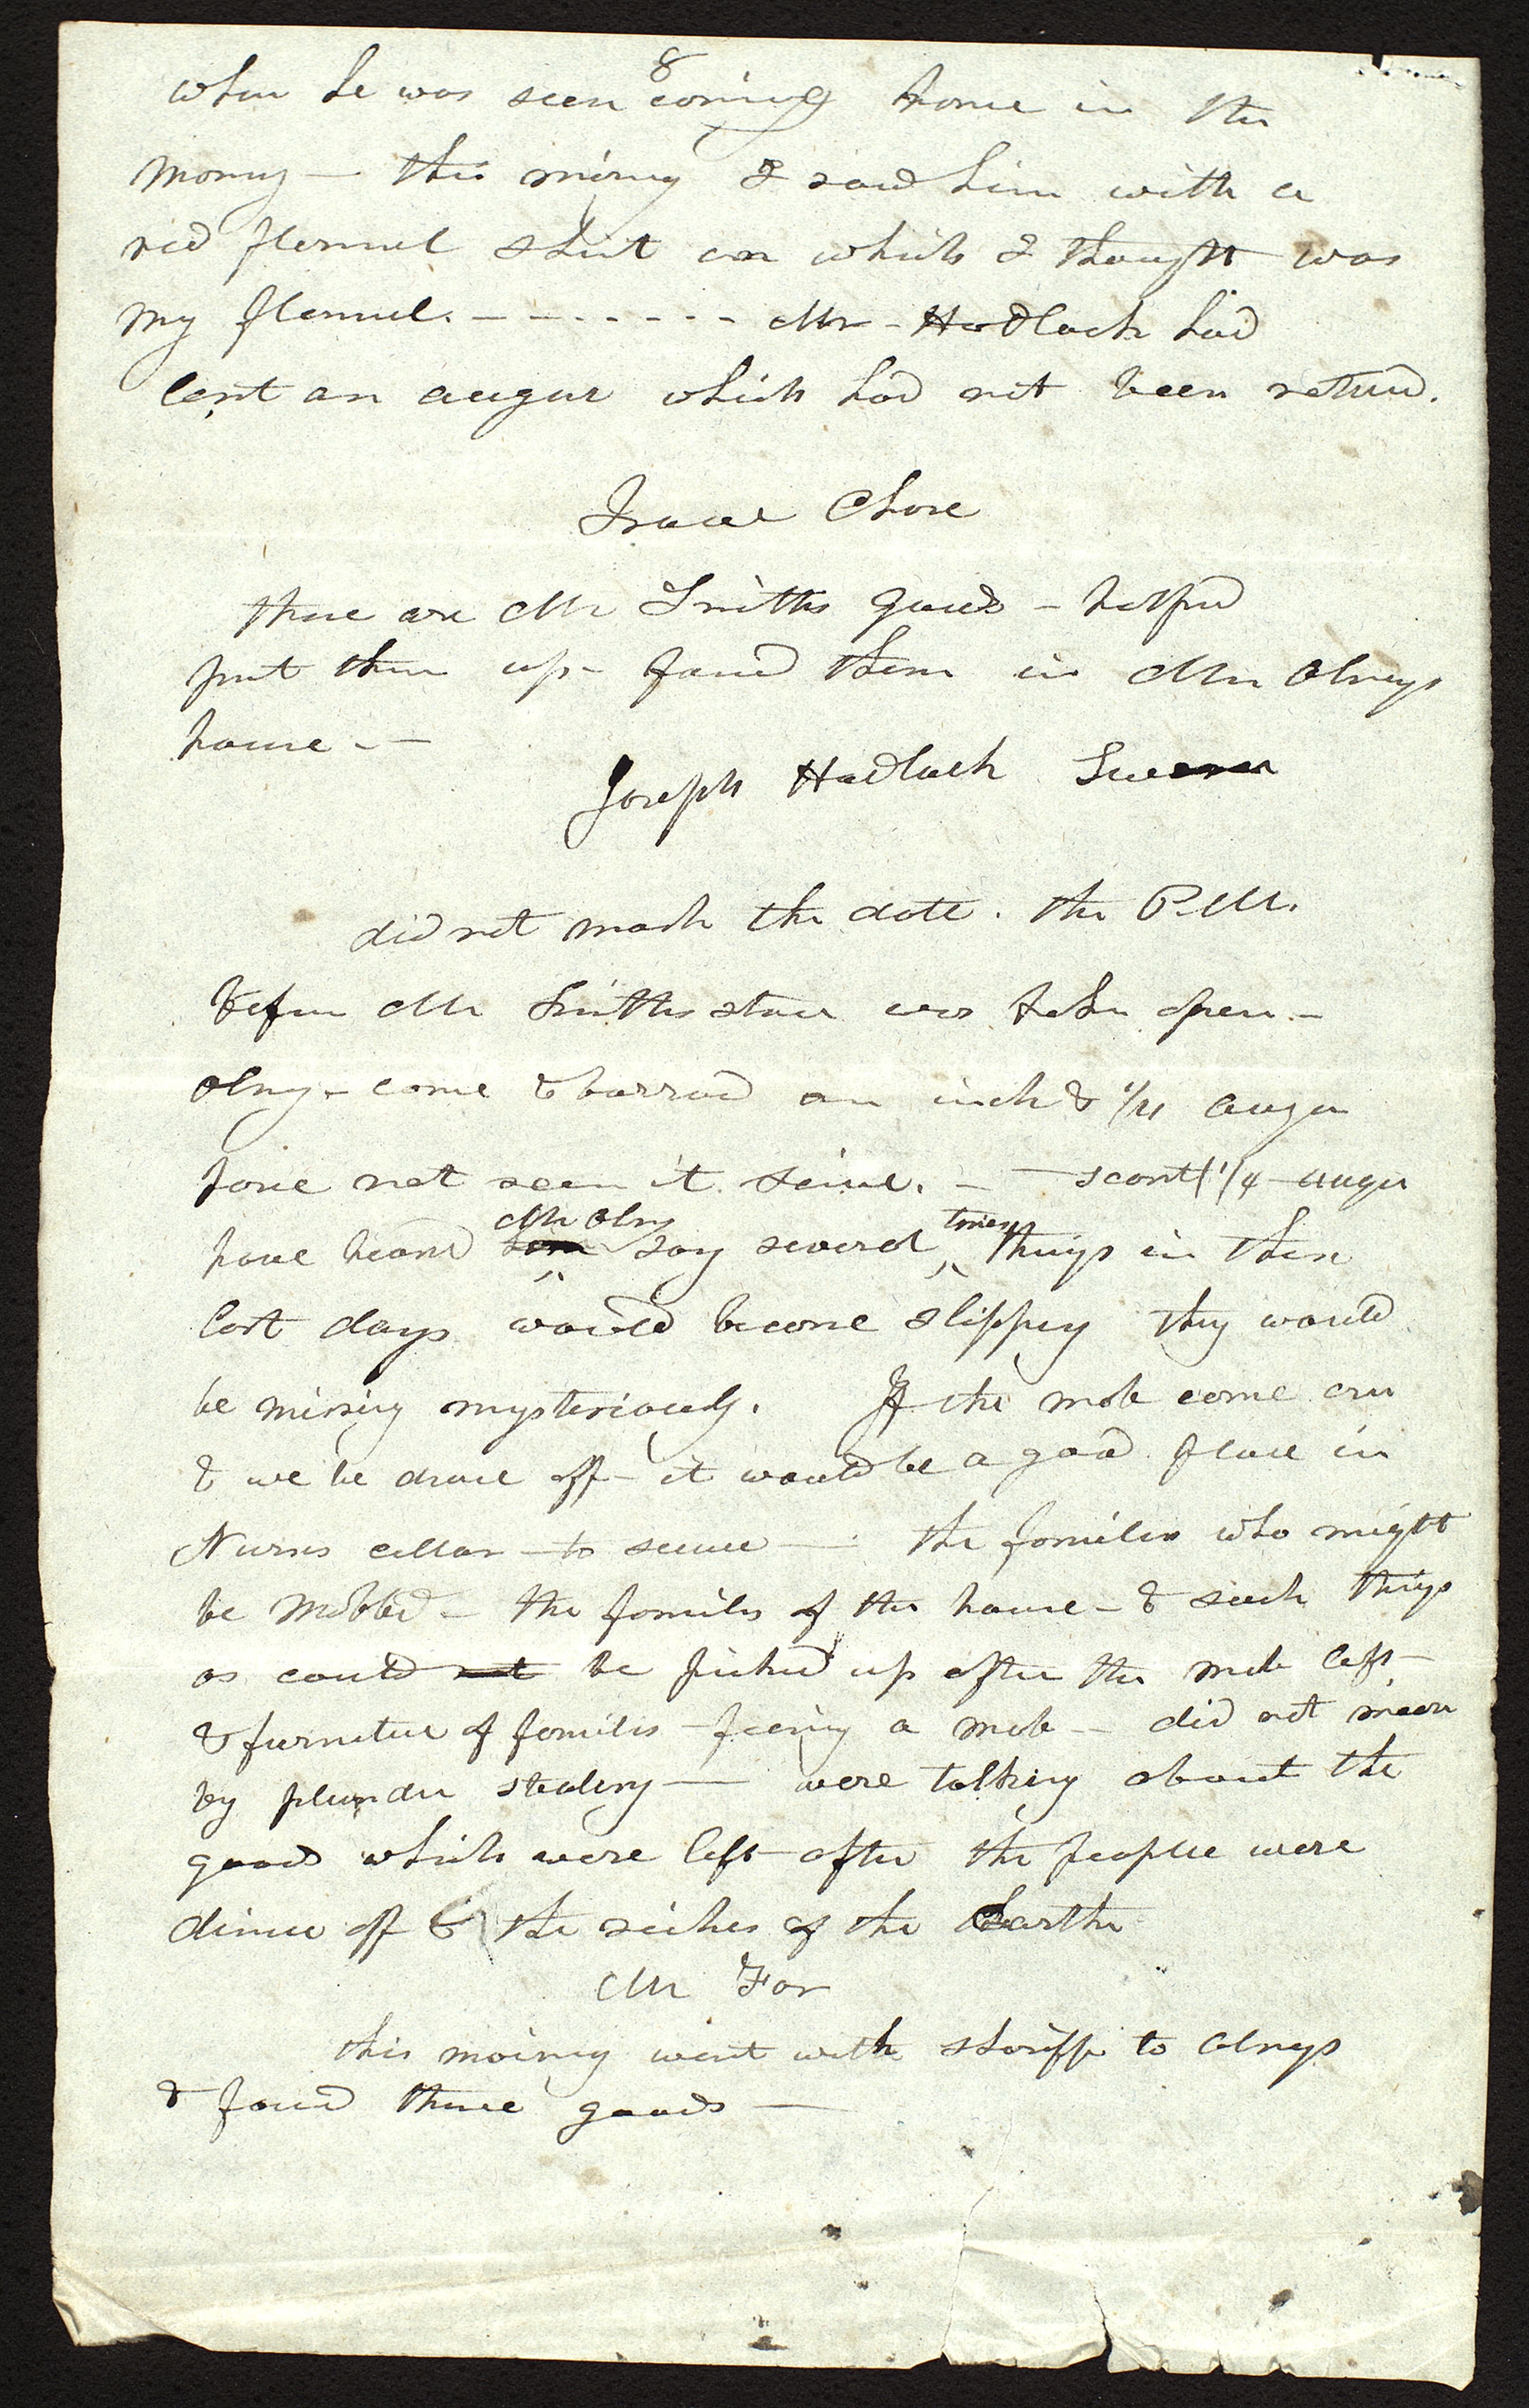 8
when he was seen coming home in the
morng — this mornig I saw him with a
red flannel shirt on which I thought was
my flannel. – – – – – – – Mr – Hadlock had
lent an augur which had not been returnd.
Isaac Chase
these are Mr Smiths goods – helped
put them up – found them in Mr Olneys
house – –
Joseph Hadlock Sworn
did not mark the date. the P.M.
before Mr Smiths store was broken open –
Olny – come & borrowd an inch & 1/4 auger
have not seen it since. – — scant 1 1/4 auger
Mr Olny times
have heard him say several things in these
last days would become slippey they would
be missing mysteriously. If the mob come on
& we be drove off – it would be a good place in
Nurses cellar – to secure — the families who might
be mobbed – the families of the house – & such things
as could not be picked up after the mob left –
& furniture of families – fearing a mob – did not mean
by plunder stealing — were talking about the
goods which were left after the people were
drove off & the riches of the Earth
Mr Fox
this morning went with sheriff to Olneys
& found these goods —